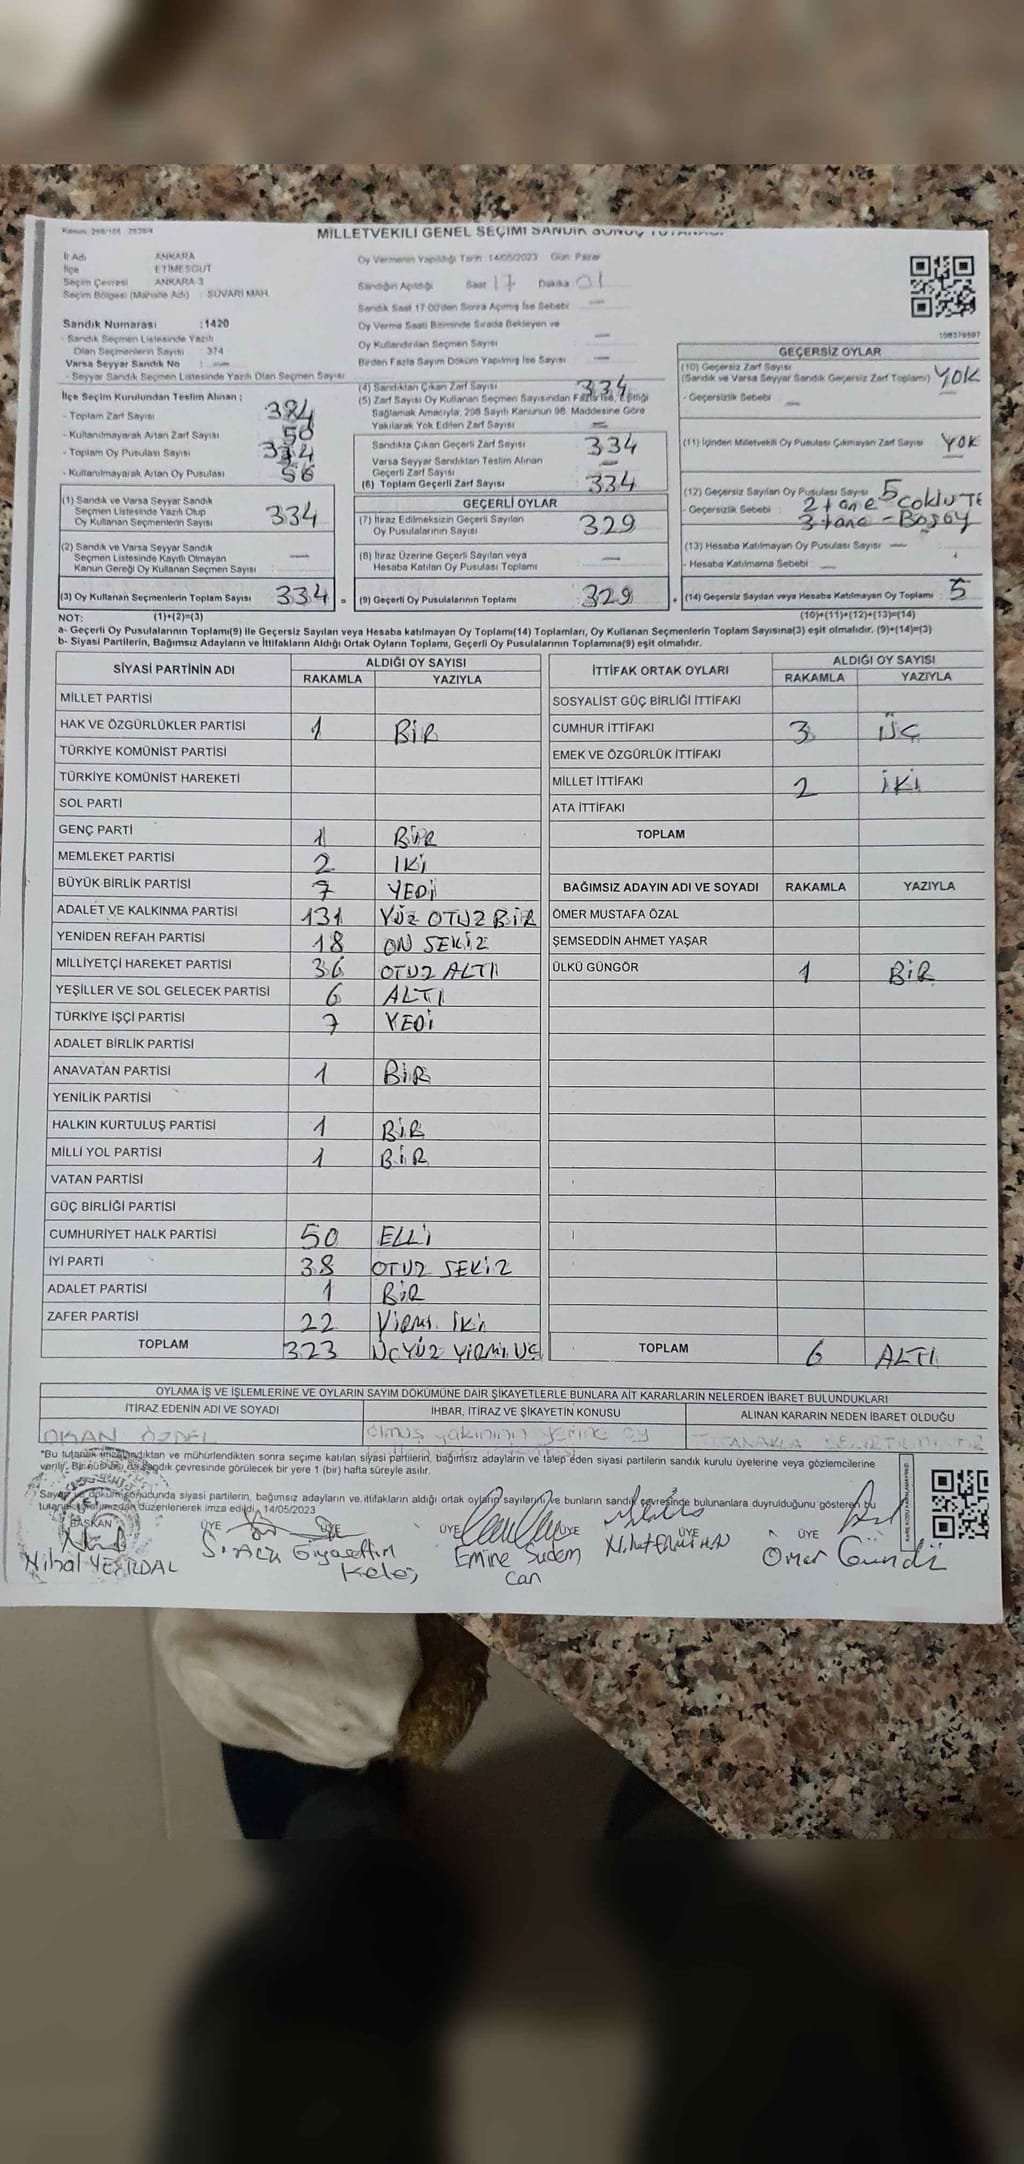 MİLLETVEKİLİ GENEL SEÇİMİ SANDIK SONUÇ TUTANAĞI
İl Adı ANKARA
İlçe ETİMESGUT
Seçim Çevresi ANKARA-3
Seçim Bölgesi (Mahalle Adı) : SÜVARİ MAH.
Sandık Numarası : 1420
- Sandık Seçmen Listesinde Yazılı
Olan Seçmenlerin Sayısı : 374
Varsa Seyyar Sandık No : —
- Seyyar Sandık Seçmen Listesinde Yazılı Olan Seçmen Sayısı
İlçe Seçim Kurulundan Teslim Alınan ;
- Toplam Zarf Sayısı 384
- Kullanılmayarak Artan Zarf Sayısı 50
- Toplam Oy Pusulası Sayısı
- Kullanılmayarak Artan Oy Pusulası
(1) Sandık ve Varsa Seyyar Sandık
Seçmen Listesinde Yazılı Olup
Oy Kullanan Seçmenlerin Sayısı 334
(2) Sandık ve Varsa Seyyar Sandık
Seçmen Listesinde Kayıtlı Olmayan
Kanun Gereği Oy Kullanan Seçmen Sayısı : —
(3) Oy Kullanan Seçmenlerin Toplam Sayısı : 334 =
Oy Vermenin Yapıldığı Tarih : 14/05/2023 Gün : Pazar
Sandığın Açıldığı Saat 17 Dakika 01
Sandık Saat 17.00'den Sonra Açılmış İse Sebebi —
Oy Verme Saati Bitiminde Sırada Bekleyen ve
Oy Kullandırılan Seçmen Sayısı —
Birden Fazla Sayım Döküm Yapılmış İse Sayısı —
(4) Sandıktan Çıkan Zarf Sayısı 334
(5) Zarf Sayısı Oy Kullanan Seçmen Sayısından Fazla ise, Eşitliği
Sağlamak Amacıyla, 298 Sayılı Kanunun 98. Maddesine Göre
Yakılarak Yok Edilen Zarf Sayısı —
Sandıkta Çıkan Geçerli Zarf Sayısı 334
Varsa Seyyar Sandıktan Teslim Alınan
Geçerli Zarf Sayısı —
(6) Toplam Geçerli Zarf Sayısı 334
GEÇERLİ OYLAR
(7) İtiraz Edilmeksizin Geçerli Sayılan
Oy Pusulalarının Sayısı 329
(8) İtiraz Üzerine Geçerli Sayılan veya
Hesaba Katılan Oy Pusulası Toplamı —
(9) Geçerli Oy Pusulalarının Toplamı 329 +
GEÇERSİZ OYLAR
(10) Geçersiz Zarf Sayısı
(Sandık ve Varsa Seyyar Sandık Geçersiz Zarf Toplamı) YOK
- Geçersizlik Sebebi : —
(11) İçinden Milletvekili Oy Pusulası Çıkmayan Zarf Sayısı YOK
(12) Geçersiz Sayılan Oy Pusulası Sayısı 5
- Geçersizlik Sebebi : 2 tane
3 tane -
(13) Hesaba Katılmayan Oy Pusulası Sayısı —
- Hesaba Katılmama Sebebi : —
(14) Geçersiz Sayılan veya Hesaba Katılmayan Oy Toplamı : 5
NOT: (1)+(2)=(3) (10)+(11)+(12)+(13)=(14)
a- Geçerli Oy Pusulalarının Toplamı(9) ile Geçersiz Sayılan veya Hesaba katılmayan Oy Toplamı(14) Toplamları, Oy Kullanan Seçmenlerin Toplam Sayısına(3) eşit olmalıdır. (9)+(14)=(3)
b- Siyasi Partilerin, Bağımsız Adayların ve İttifakların Aldığı Ortak Oyların Toplamı, Geçerli Oy Pusulalarının Toplamına(9) eşit olmalıdır.
SİYASİ PARTİNİN ADI ALDIĞI OY SAYISI
RAKAMLA YAZIYLA
MİLLET PARTİSİ
HAK VE ÖZGÜRLÜKLER PARTİSİ 1 BİR
TÜRKİYE KOMÜNİST PARTİSİ
TÜRKİYE KOMÜNİST HAREKETİ
SOL PARTİ
GENÇ PARTİ 1 BİR
MEMLEKET PARTİSİ 2 İKİ
BÜYÜK BİRLİK PARTİSİ 7 YEDİ
ADALET VE KALKINMA PARTİSİ 131 YÜZ OTUZ BİR
YENİDEN REFAH PARTİSİ 18 ON SEKİZ
MİLLİYETÇİ HAREKET PARTİSİ 36 OTUZ ALTI
YEŞİLLER VE SOL GELECEK PARTİSİ 6 ALTI
TÜRKİYE İŞÇİ PARTİSİ 7 YEDİ
ADALET BİRLİK PARTİSİ
ANAVATAN PARTİSİ 1 BİR
YENİLİK PARTİSİ
HALKIN KURTULUŞ PARTİSİ 1 BİR
MİLLİ YOL PARTİSİ 1 BİR
VATAN PARTİSİ
GÜÇ BİRLİĞİ PARTİSİ
CUMHURİYET HALK PARTİSİ 50 ELLİ
İYİ PARTİ 38 OTUZ SEKİZ
ADALET PARTİSİ 1 BİR
ZAFER PARTİSİ 22 YİRMİ İKİ
TOPLAM 323 ÜÇYÜZ YİRMİ ÜÇ
İTTİFAK ORTAK OYLARI ALDIĞI OY SAYISI
RAKAMLA YAZIYLA
SOSYALİST GÜÇ BİRLİĞİ İTTİFAKI
CUMHUR İTTİFAKI 3 ÜÇ
EMEK VE ÖZGÜRLÜK İTTİFAKI
MİLLET İTTİFAKI 2 İKİ
ATA İTTİFAKI
TOPLAM
BAĞIMSIZ ADAYIN ADI VE SOYADI RAKAMLA YAZIYLA
ÖMER MUSTAFA ÖZAL
ŞEMSEDDİN AHMET YAŞAR
ÜLKÜ GÜNGÖR 1 BİR
TOPLAM 6 ALTI
OYLAMA İŞ VE İŞLEMLERİNE VE OYLARIN SAYIM DÖKÜMÜNE DAİR ŞİKAYETLERLE BUNLARA AİT KARARLARIN NELERDEN İBARET BULUNDUKLARI
İTİRAZ EDENİN ADI VE SOYADI İHBAR, İTİRAZ VE ŞİKAYETİN KONUSU ALINAN KARARIN NEDEN İBARET OLDUĞU
OKAN ÖZDEL olmuş yakınının yerine oy
*Bu tutanak imzalandıktan ve mühürlendikten sonra seçime katılan siyasi partilerin, bağımsız adayların ve talep eden siyasi partilerin sandık kurulu üyelerine veya gözlemcilerine
verilir. Bir nüshası da sandık çevresinde görülecek bir yere 1 (bir) hafta süreyle asılır.
Sayım ve döküm sonucunda siyasi partilerin, bağımsız adayların ve ittifakların aldığı ortak oyların sayılarını ve bunların sandık çevresinde bulunanlara duyrulduğunu gösteren bu
tutanak tarafımızdan düzenlenerek imza edildi. 14/05/2023
BAŞKAN ÜYE ÜYE ÜYE ÜYE ÜYE ÜYE
Nihal Emine Sudem Can Ömer Gündü
Keleş